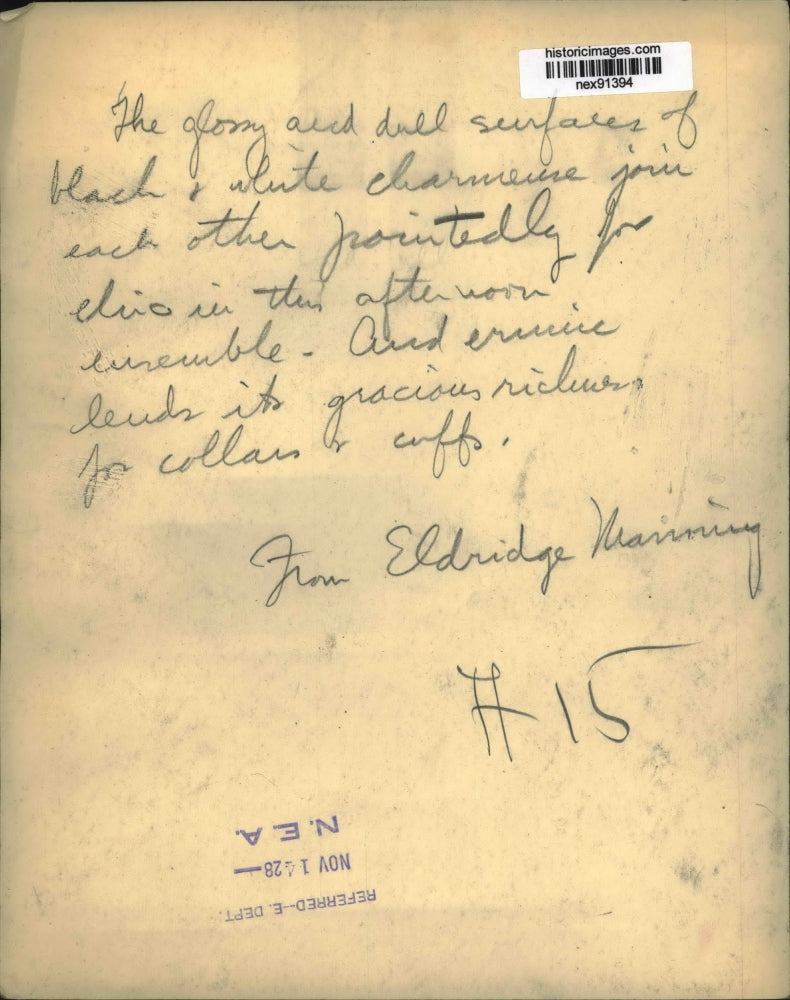 historicimages.com
nex91394
The glossy and dull surfaces of
black & white charmeuse join
each other pointedly for
chic in this afternoon
ensemble - And ermine
lends its gracious richness
for collars & cuffs.
From Eldridge Manning
# 15
REFERRED-E. DEPT.
NOV 14 28
N.E.A.